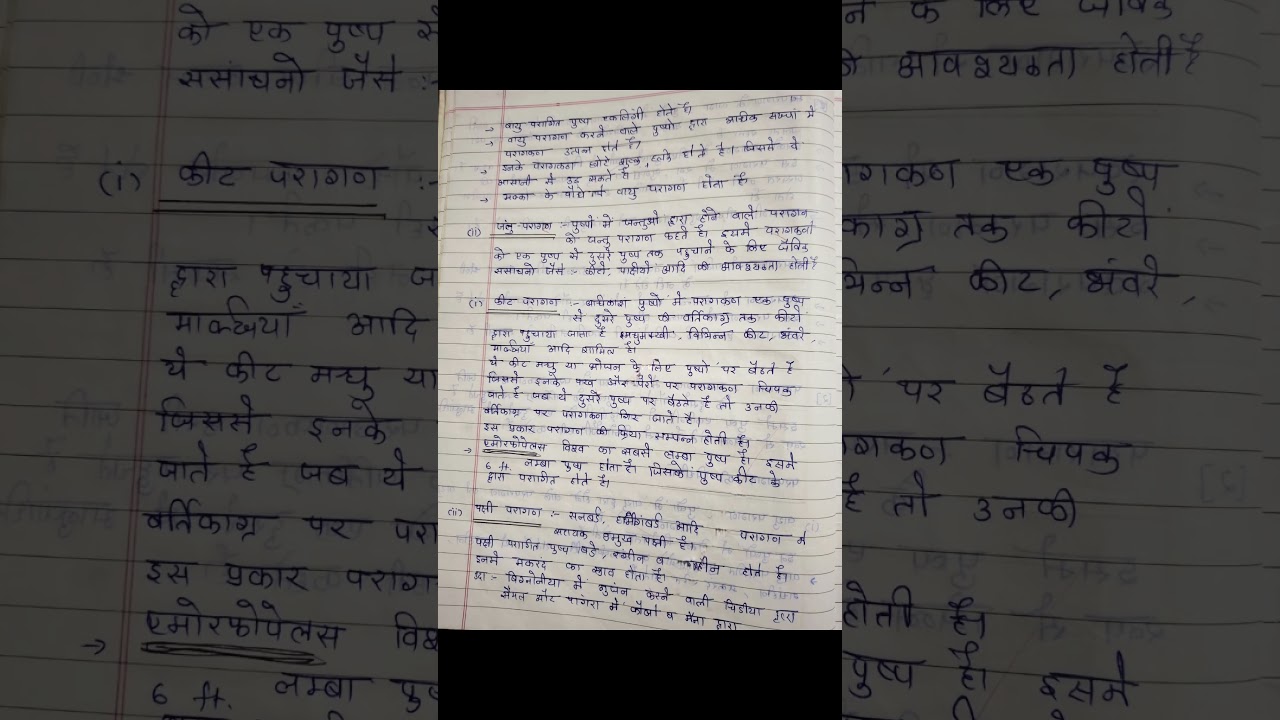 → वायु परागित पुष्प एकलिंगी होते है।
→ वायु परागण करने वाले पुष्पो द्वारा अधिक संख्या मे
परागकण उत्पन्न होते है।
→ इनके परागकण छोटे शुष्क, हल्के होते है। जिससे ये
आसानी से उड सकते है
→ मक्का के पौधे मे वायु परागण होता है।
(ii) जंतु परागण :- पुष्पो मे जन्तुओ द्वारा होने वाले परागण
को जन्तु परागण कहते है। इसमे परागकणो
को एक पुष्प से दुसरे पुष्प तक पहुचाने के लिए जैविक
ससांधनो जैसे :- कीटो, पक्षीयो आदि की आवश्यकता होती है
(i) कीट परागण :- अधिकांश पुष्पो मे परागकण एक पुष्प
से दुसरे पुष्प की वर्तिकाग्र तक कीटो
द्वारा पहुचाया जाता है मधुमक्खी, विभिन्न कीट, भंवरे,
मक्खियाँ आदि शामिल है।
ये कीट मधु या भोजन के लिए पुष्पो पर बैठते है
जिससे इनके पंख और पैरो पर परागकण चिपक
जाते है जब ये दुसरे पुष्प पर बैठते है तो उनकी
वर्तिकाग्र पर परागकण गिर जाते है।
इस प्रकार परागण की क्रिया सम्पन्न होती है।
→ एमोरफोपेलस विश्व का सबसे लम्बा पुष्प है। इसमे
6 ft. लम्बा पुष्प होता है। जिसके पुष्प कीट के
द्वारा परागित होते है।
(ii) पक्षी परागण :- सनबर्ड, हमिंगबर्ड आदि परागण मे
सहायक प्रमुख पक्षी है।
पक्षी परागित पुष्प बडे, रंगीन व होते है।
इनमे मकरंद का स्त्राव होता है।
उदा :- बिगनोनीया मे गुंचन करने वाली चिडीया द्वारा
सेमल और पांगरा मे कौओ व मैना द्वारा